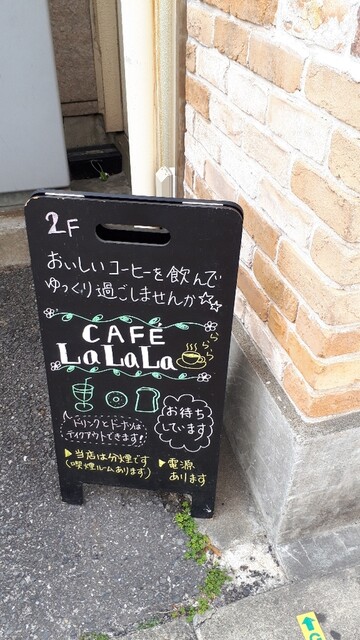 2F
おいしいコーヒーを飲んで
ゆっくり過ごしませんか☆☆
CAFÉ
LaLaLa
らららら
ドリンクとドーナツは
テイクアウトできます!
お待ち
しています
▶当店は分煙です
(喫煙ルームあります)
▶電源
あります